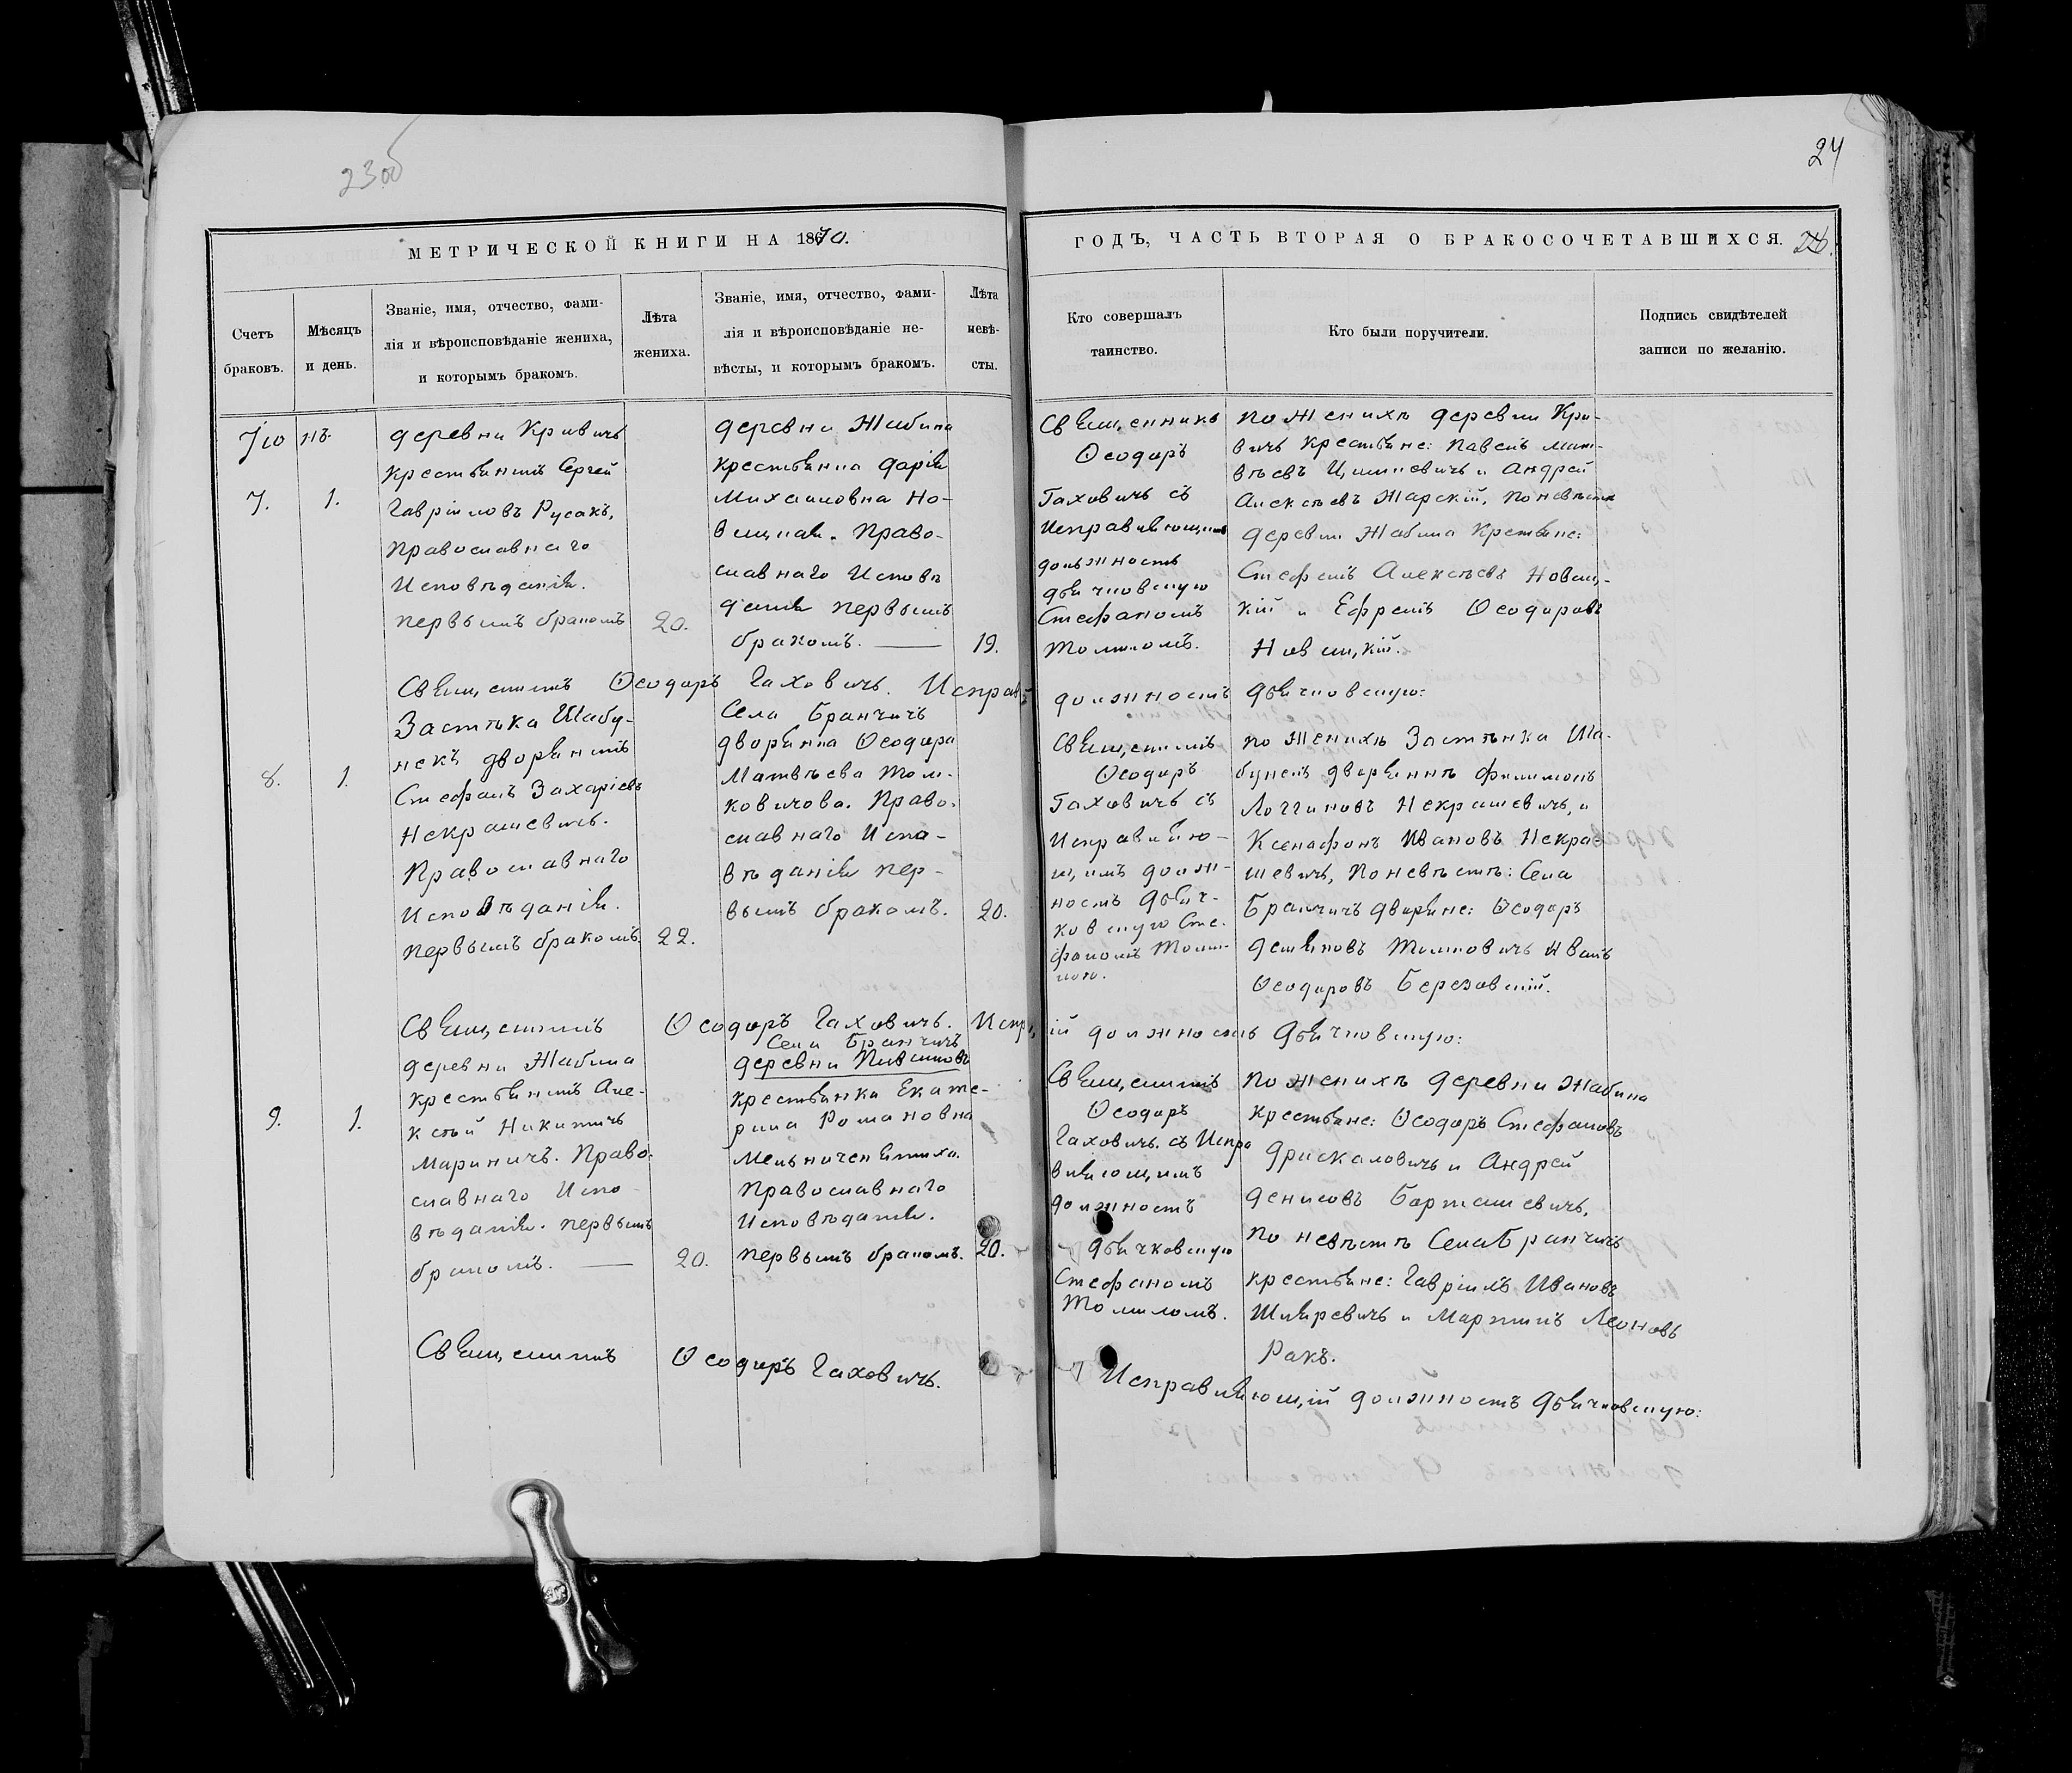 23об
24
МЕТРИЧЕСКОЙ КНИГИ НА 1870.
ГОДЪ, ЧАСТЬ ВТОРАЯ О БРАКОСОЧЕТАВШИХСЯ.
Счетъ
браковъ.
Мѣсяцъ
и день.
Званіе, имя, отчество, фами-
лія и вѣроисповѣданіе жениха,
и которымъ бракомъ.
Лѣта
жениха.
Званіе, имя, отчество, фами-
лія и вѣроисповѣданіе не-
вѣсты, и которымъ бракомъ.
Лѣта
невѣ-
сты.
Кто совершалъ
таинство.
Кто были поручители.
Подпись свидѣтелей
записи по желанію.
Іюнь.
7.
1.
деревни Кривичь
крестьянинъ Сергей
Гавріиловъ Русакъ,
Православнаго
Исповѣданія.
первымъ бракомъ
20.
деревни Жабина
крестьянка Дарія
Михаиловна Но-
вицкая. Право-
славнаго Исповѣ
данія первымъ
бракомъ.
19.
Священникъ
Ѳеодоръ
Гаховичь съ
Исправляющимъ
должность
дьячковскую
Стефаномъ
Томиломъ.
по женихѣ деревни Кри-
вичь крестьяне: Павелъ Мат-
вѣевъ и Андрей
Алексѣевъ Жарскій, по невѣстѣ
деревни Жабина Крестьяне:
Стефанъ Алексѣевъ Новиц-
кій и Ефремъ Ѳеодоровъ
Новицкій.
Священникъ Ѳеодоръ Гаховичь. Исправ
должность дьячковскую:
8.
1.
Застѣка Шабу-
некъ дворянинъ
Стефанъ Захаріевъ
Некрашевичь.
Православнаго
Исповѣданія.
первымъ бракомъ.
22.
Села Бранчичь
дворянка Ѳеодора
Матвѣева Том-
ковичова. Право-
славнаго Испо-
вѣданія пер-
вымъ бракомъ.
20.
Священникъ
Ѳеодоръ
Гаховичь съ
Исправляю-
щимъ долж-
ность дьяч-
ковскую Сте-
фаномъ Томи-
ломъ.
по женихѣ Застѣнка Ша-
бунекъ дворянинъ Филимонъ
Логгиновъ Некрашевичь, и
Ксенофонъ Ивановъ Некра
шевичь, По невѣстѣ: Села
Бранчичь дворяне: Ѳеодоръ
Томковичь Иванъ
Ѳеодоровъ Березовскій.
Священникъ Ѳеодоръ Гаховичь. Испр
ій должность дьячковскую:
9.
1.
деревни Жабина
крестьянинъ Але-
ксѣй Никитичь
Мариничъ. Право-
славнаго Испо-
вѣданія. первымъ
бракомъ.
20.
Села Бранчичь
деревни
крестьянка Екате-
рина Романовна
Мельниченятиха.
Православнаго
Исповѣданія.
первымъ бракомъ.
20.
Священникъ
Ѳеодоръ
Гаховичь. съ Испра
вляющимъ
должность
дьячковскую
Стефаномъ
Томиломъ.
По женихѣ деревни Жабина
крестьяне: Ѳеодоръ Стефановъ
Дрискаловичь и Андрей
Денисовъ Барташевичь.
По невѣстѣ Села Бранчичь
крестьяне: Гавріилъ Ивановъ
Шкляревичь и Мартинъ Леоновъ
Ракъ.
Священникъ Ѳеодоръ Гаховичь.
Исправляющій должность дьячковскую: